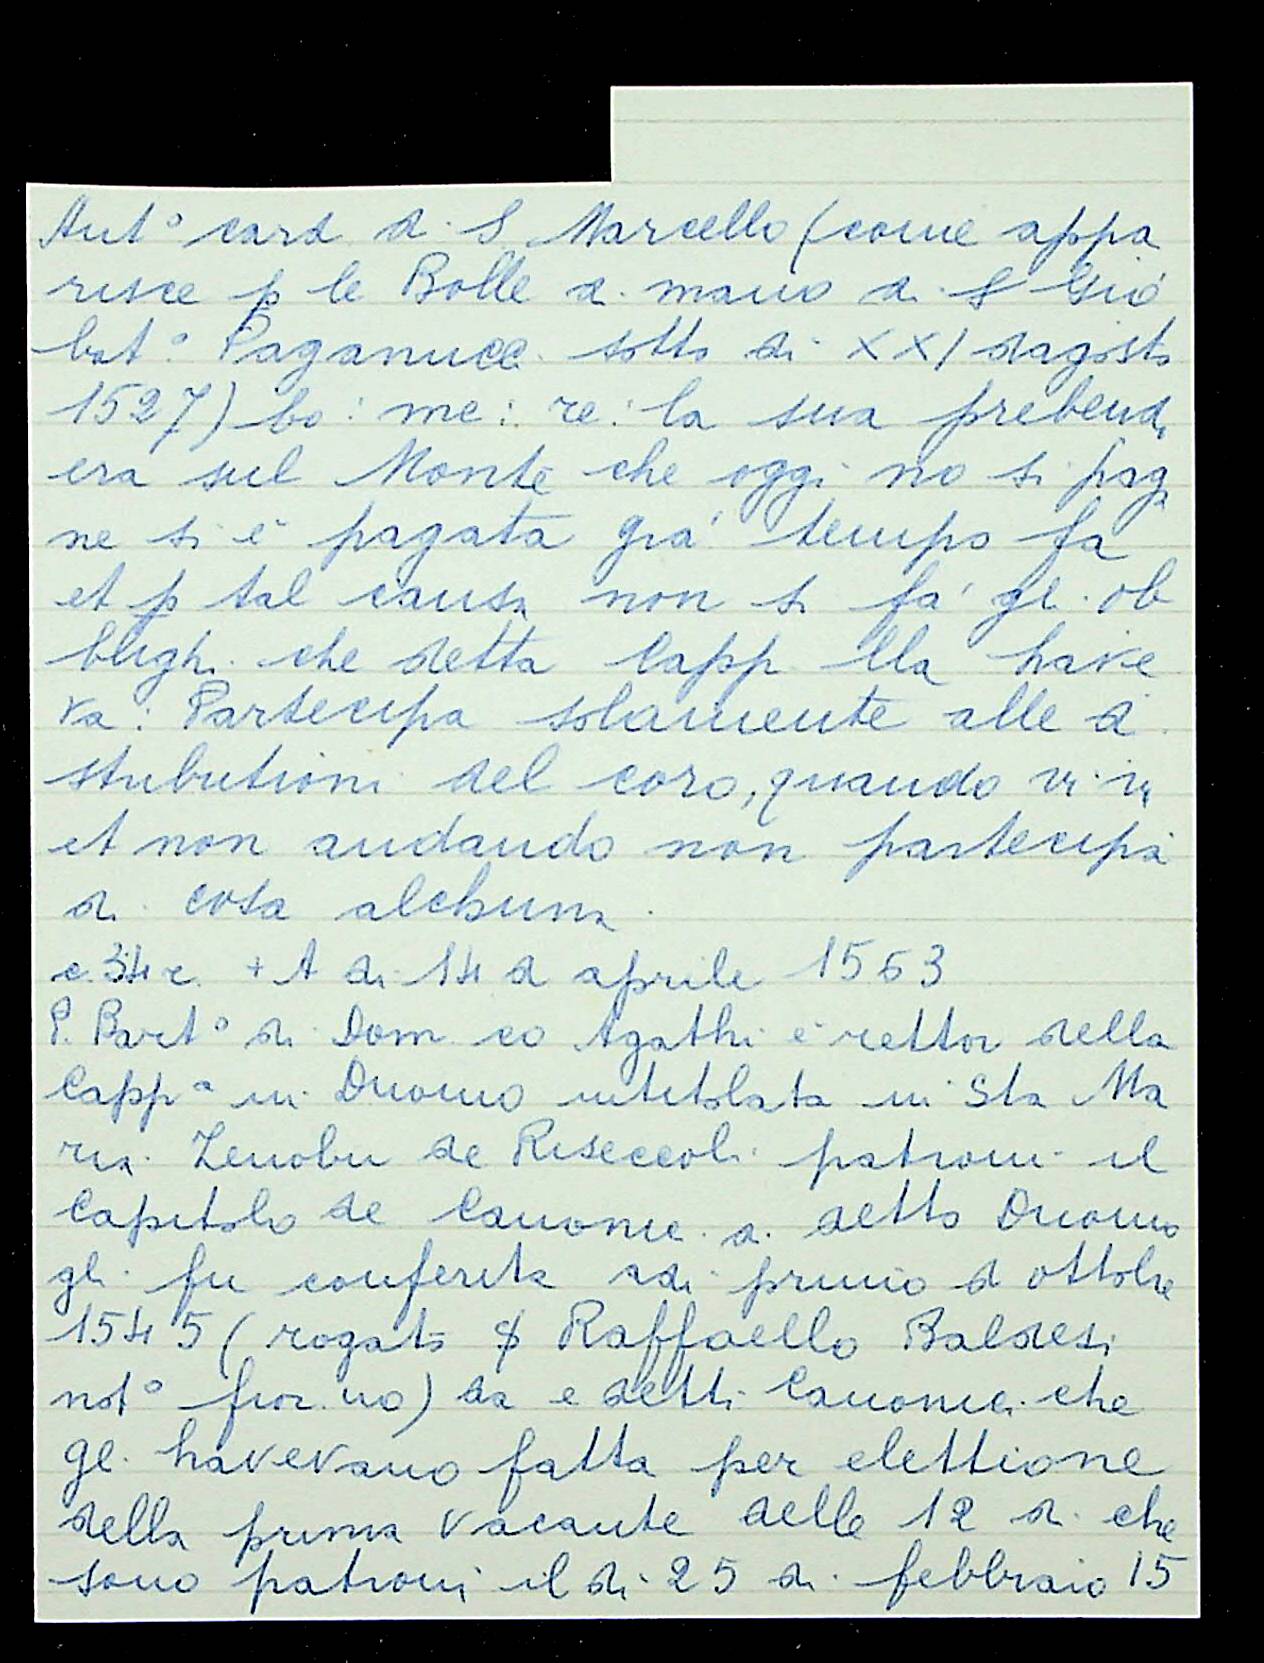 Ant° card di S Marcello (come appa
risce p le Bolle di mano di S Gio
bat° Paganucci sotto di XXI dagosto
1527) bo: me: re: la sua prebenda
era sul Monte che oggi no si paga
ne si è pagata già tempo fa
et p tal causa non si fa' gli ob
blighi che detta Capp lla have
va: Partecipa solamente alle di
stributioni del coro, quando vi
et non andando non partecipa
di cosa alchuna.
c. 34r. + A di 14 d aprile 1563
P. Bart° di Dom co Agathi è rettor della
Capp a in Duomo intitolata in Sta Ma
ria Zenobii de patroni il
Capitolo de Canonici di detto Duomo
gli fu conferita adi primo d ottobre
1545 (rogato p Raffaello Baldesi
not° fior. no) da e detti Canonici che
gli havevano fatta per elettione
della prima vacante delle 12 di che
sono patroni il di 25 di febbraio 15